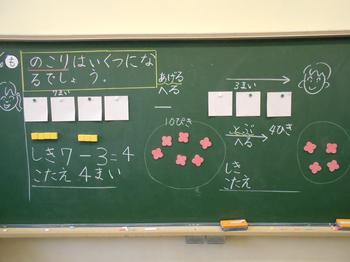 も
のこりはいくつにな
るでしょう.
7まい
しき7-3=4
こたえ 4まい
あげる
へる
3まい
10ぴき
とぶ
へる
4ひき
しき
こたえ